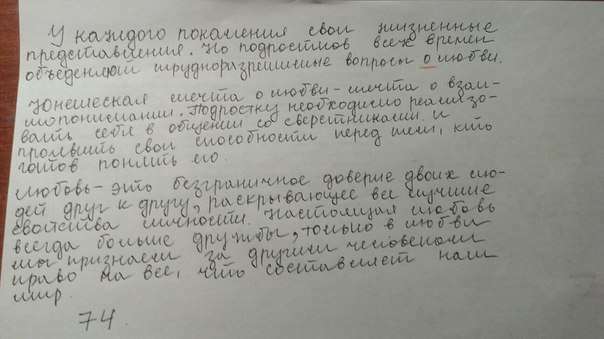 У каждого поколения свои жизненные
представления. Но подростков всех времен
объеденяют трудноразрешимые вопросы о любви.
Юнешеская мечта о любви - мечта о взаи-
мопонимании. Подростку необходимо реализо-
вать себя в общении со сверстниками и
проявить свои способности перед теми, кто
готов понять его.
Любовь - это безграничное доверие двоих лю-
дей друг к другу, раскрывающее все лучшие
свойства личности. Настоящая любовь
всегда больше дружбы, только в любви
мы признаем за другим человеком
право на все, что составляет наш
мир.
74